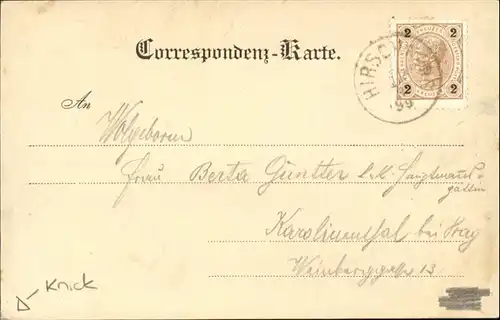 Correspondenz-Karte.
2 2
2 2
HIRSC
99
An
Wolgeboren
Frau Berta Günther k.k. Hauptmanns-
gattin
Karolinenthal bei Prag
Weinberggasse 13
Knick